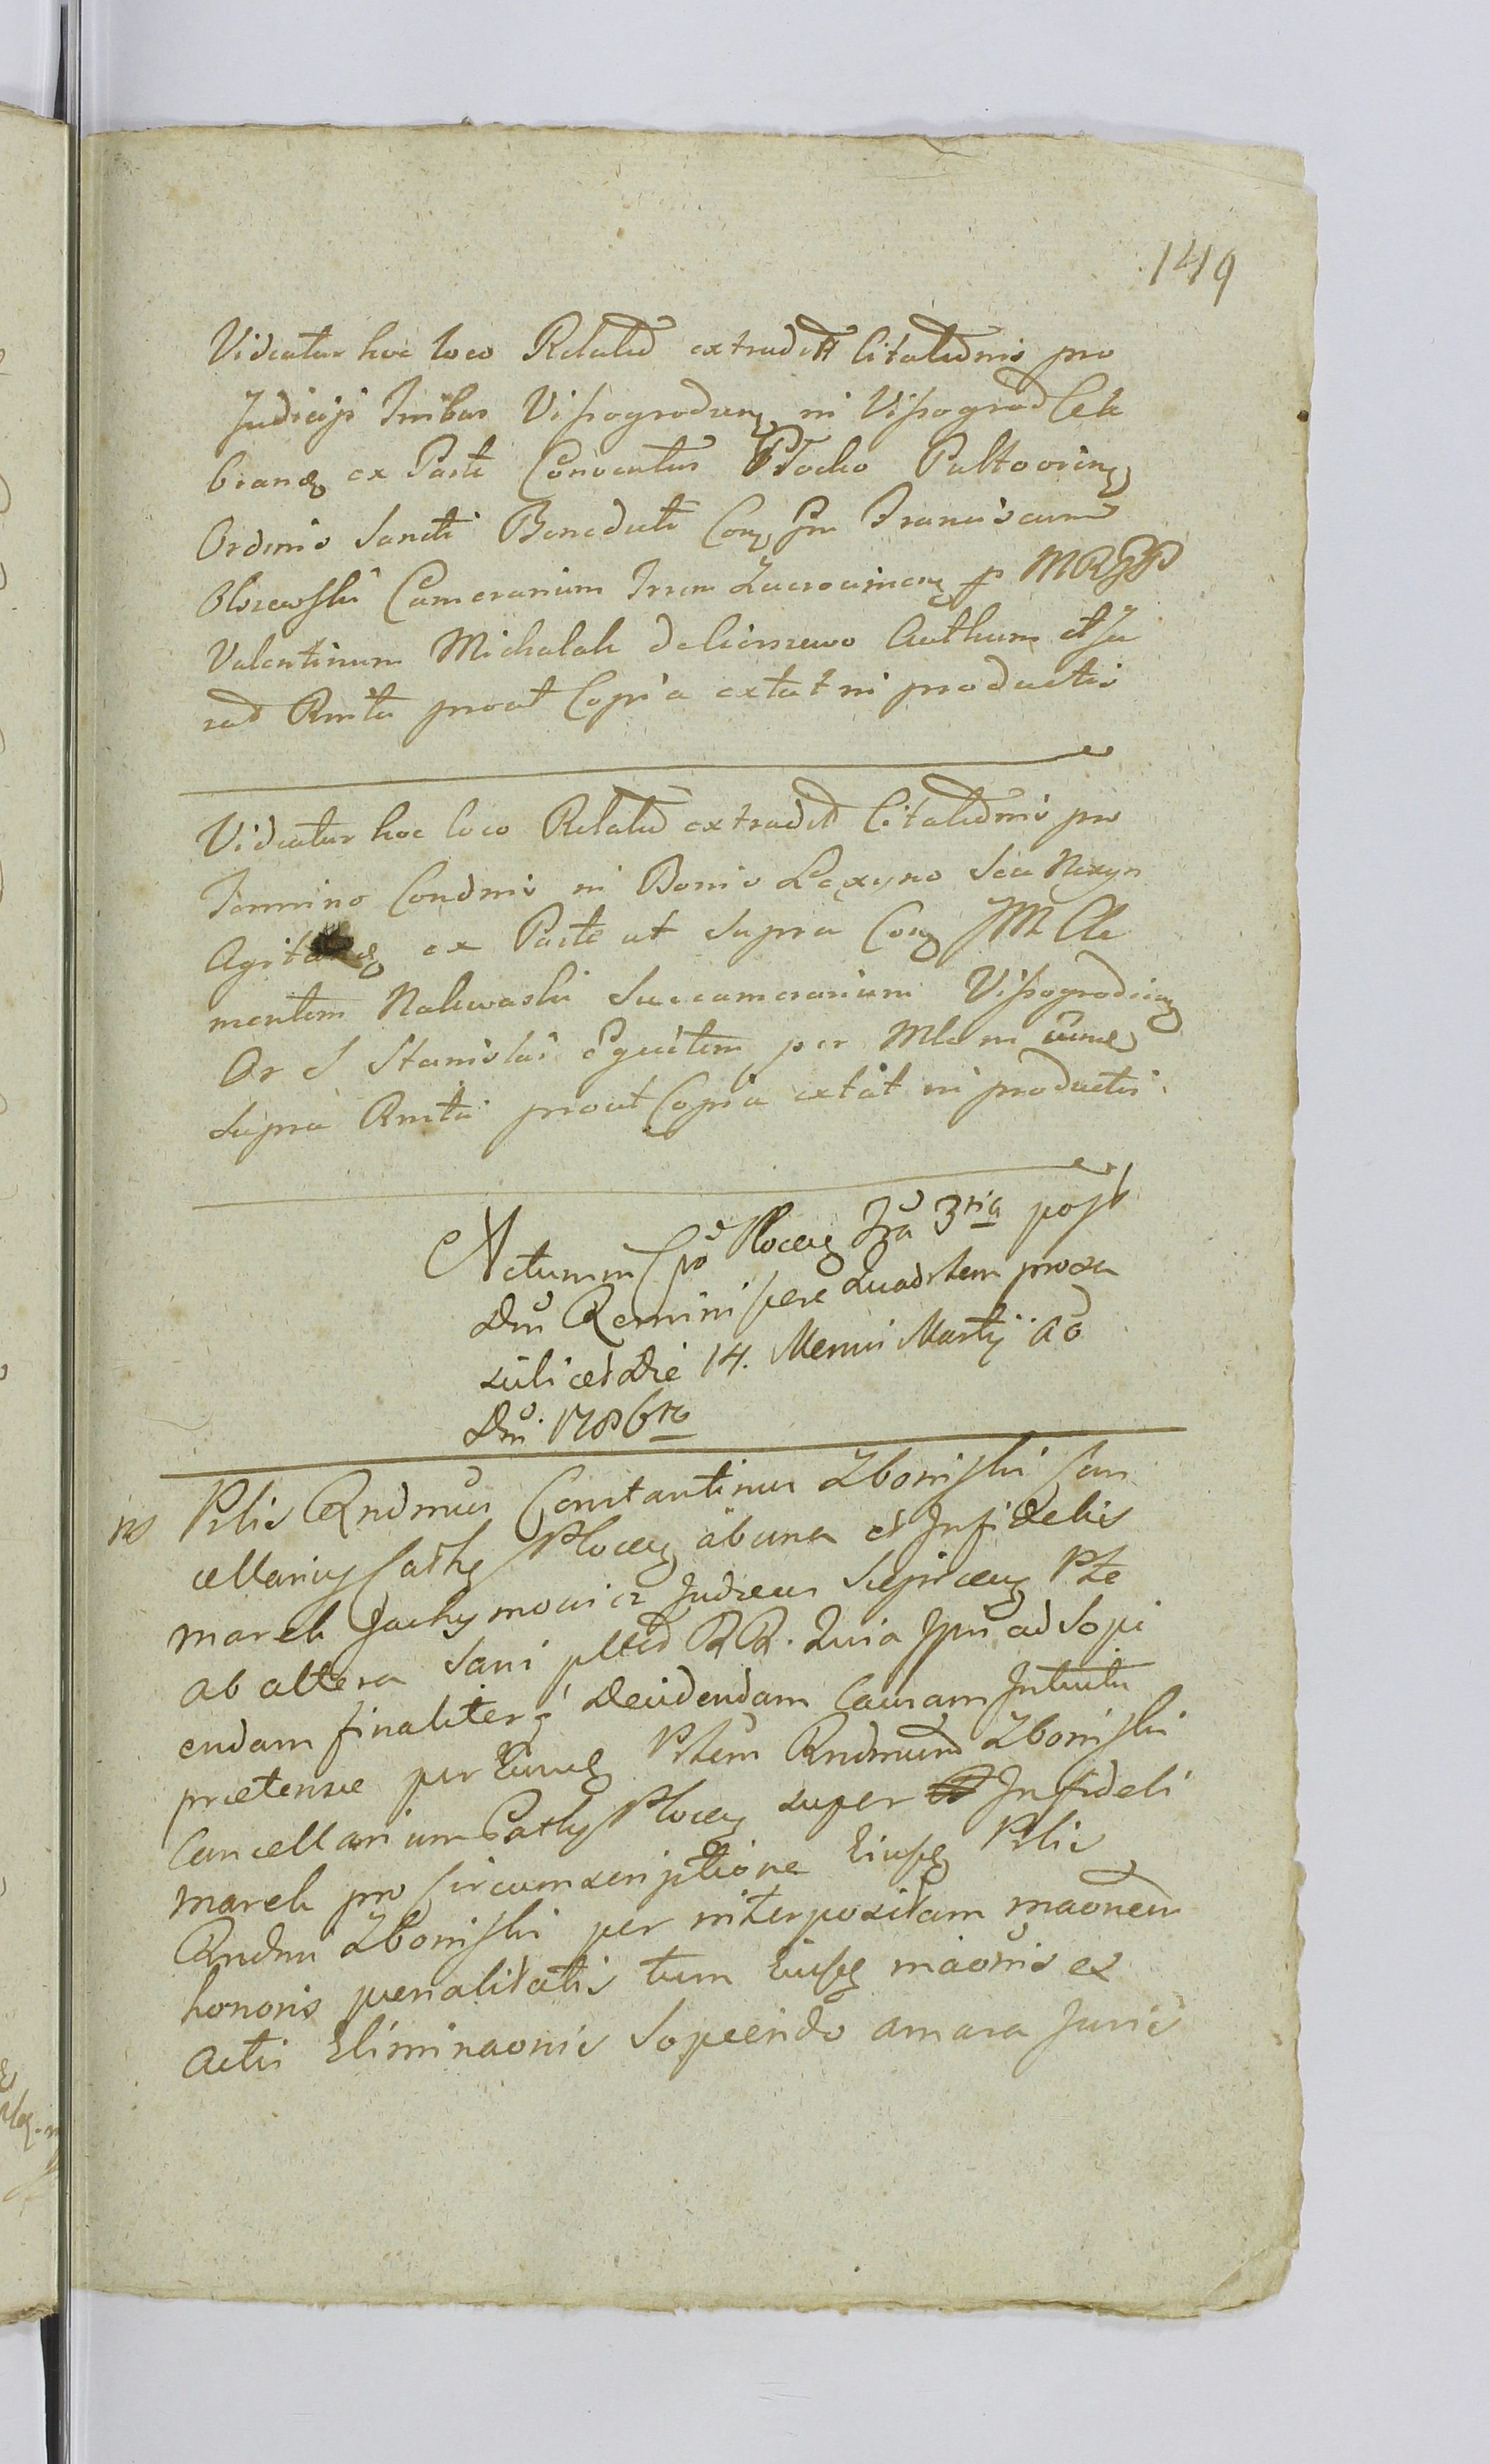 149
Videatur hoc loco Relatio extradit Citationis pro
Judicijs Trribus Vissogrodien in Vissogrod Cele
brand ex Parte Conventus Plocko Pultovien
Ordinis Sancti Benedicti Con Gm Franciscum
Olszewski Camerarium Trrm Zacrocimen p MRGP
Valentinum Michalak de Ciemiewo Authum et Ju
rad Rmta prout Copia extat in productis
Videatur hoc loco Relatio extradit Citationis pro
Termino Condnis in Bonis Lexyno seu Nexyn
Agit ex Parte ut supra Con JM Cle
mentem Nakwaski Succamerarium Vissogrodien
Or S Stanislai Equitem per Mlem eund
supra Rmta prout Copia extat in productis
Actum in Cro Plocen Fra 3tia post
Dm Reminiscere Quadrlem proxa
scilicet Die 14. Mensis Martij Ao
Dni 1786to
ns Prlis Rndmus Constantinus Zboinski Can
cellarius Cathe Plocen ab una et Infidelis
Marek Jachymowicz Judaeus Sieprcen Pte
ab altera Sani pltd RR. Quia Ipsi ad Sopi
endam finaliterq Decidendam Causam Intuitu
praetensae per Eund Prlem Rndmum Zboinski
Cancellarium Cathe Plocen super Infideli
Marek pro Circumscriptione Eiusd Prlis
Rndmi Zboinski per interpositam maonem
honoris venalitatis tum Eiusd maonis ex
Actis Eliminaonis Sopiendo amara Juris